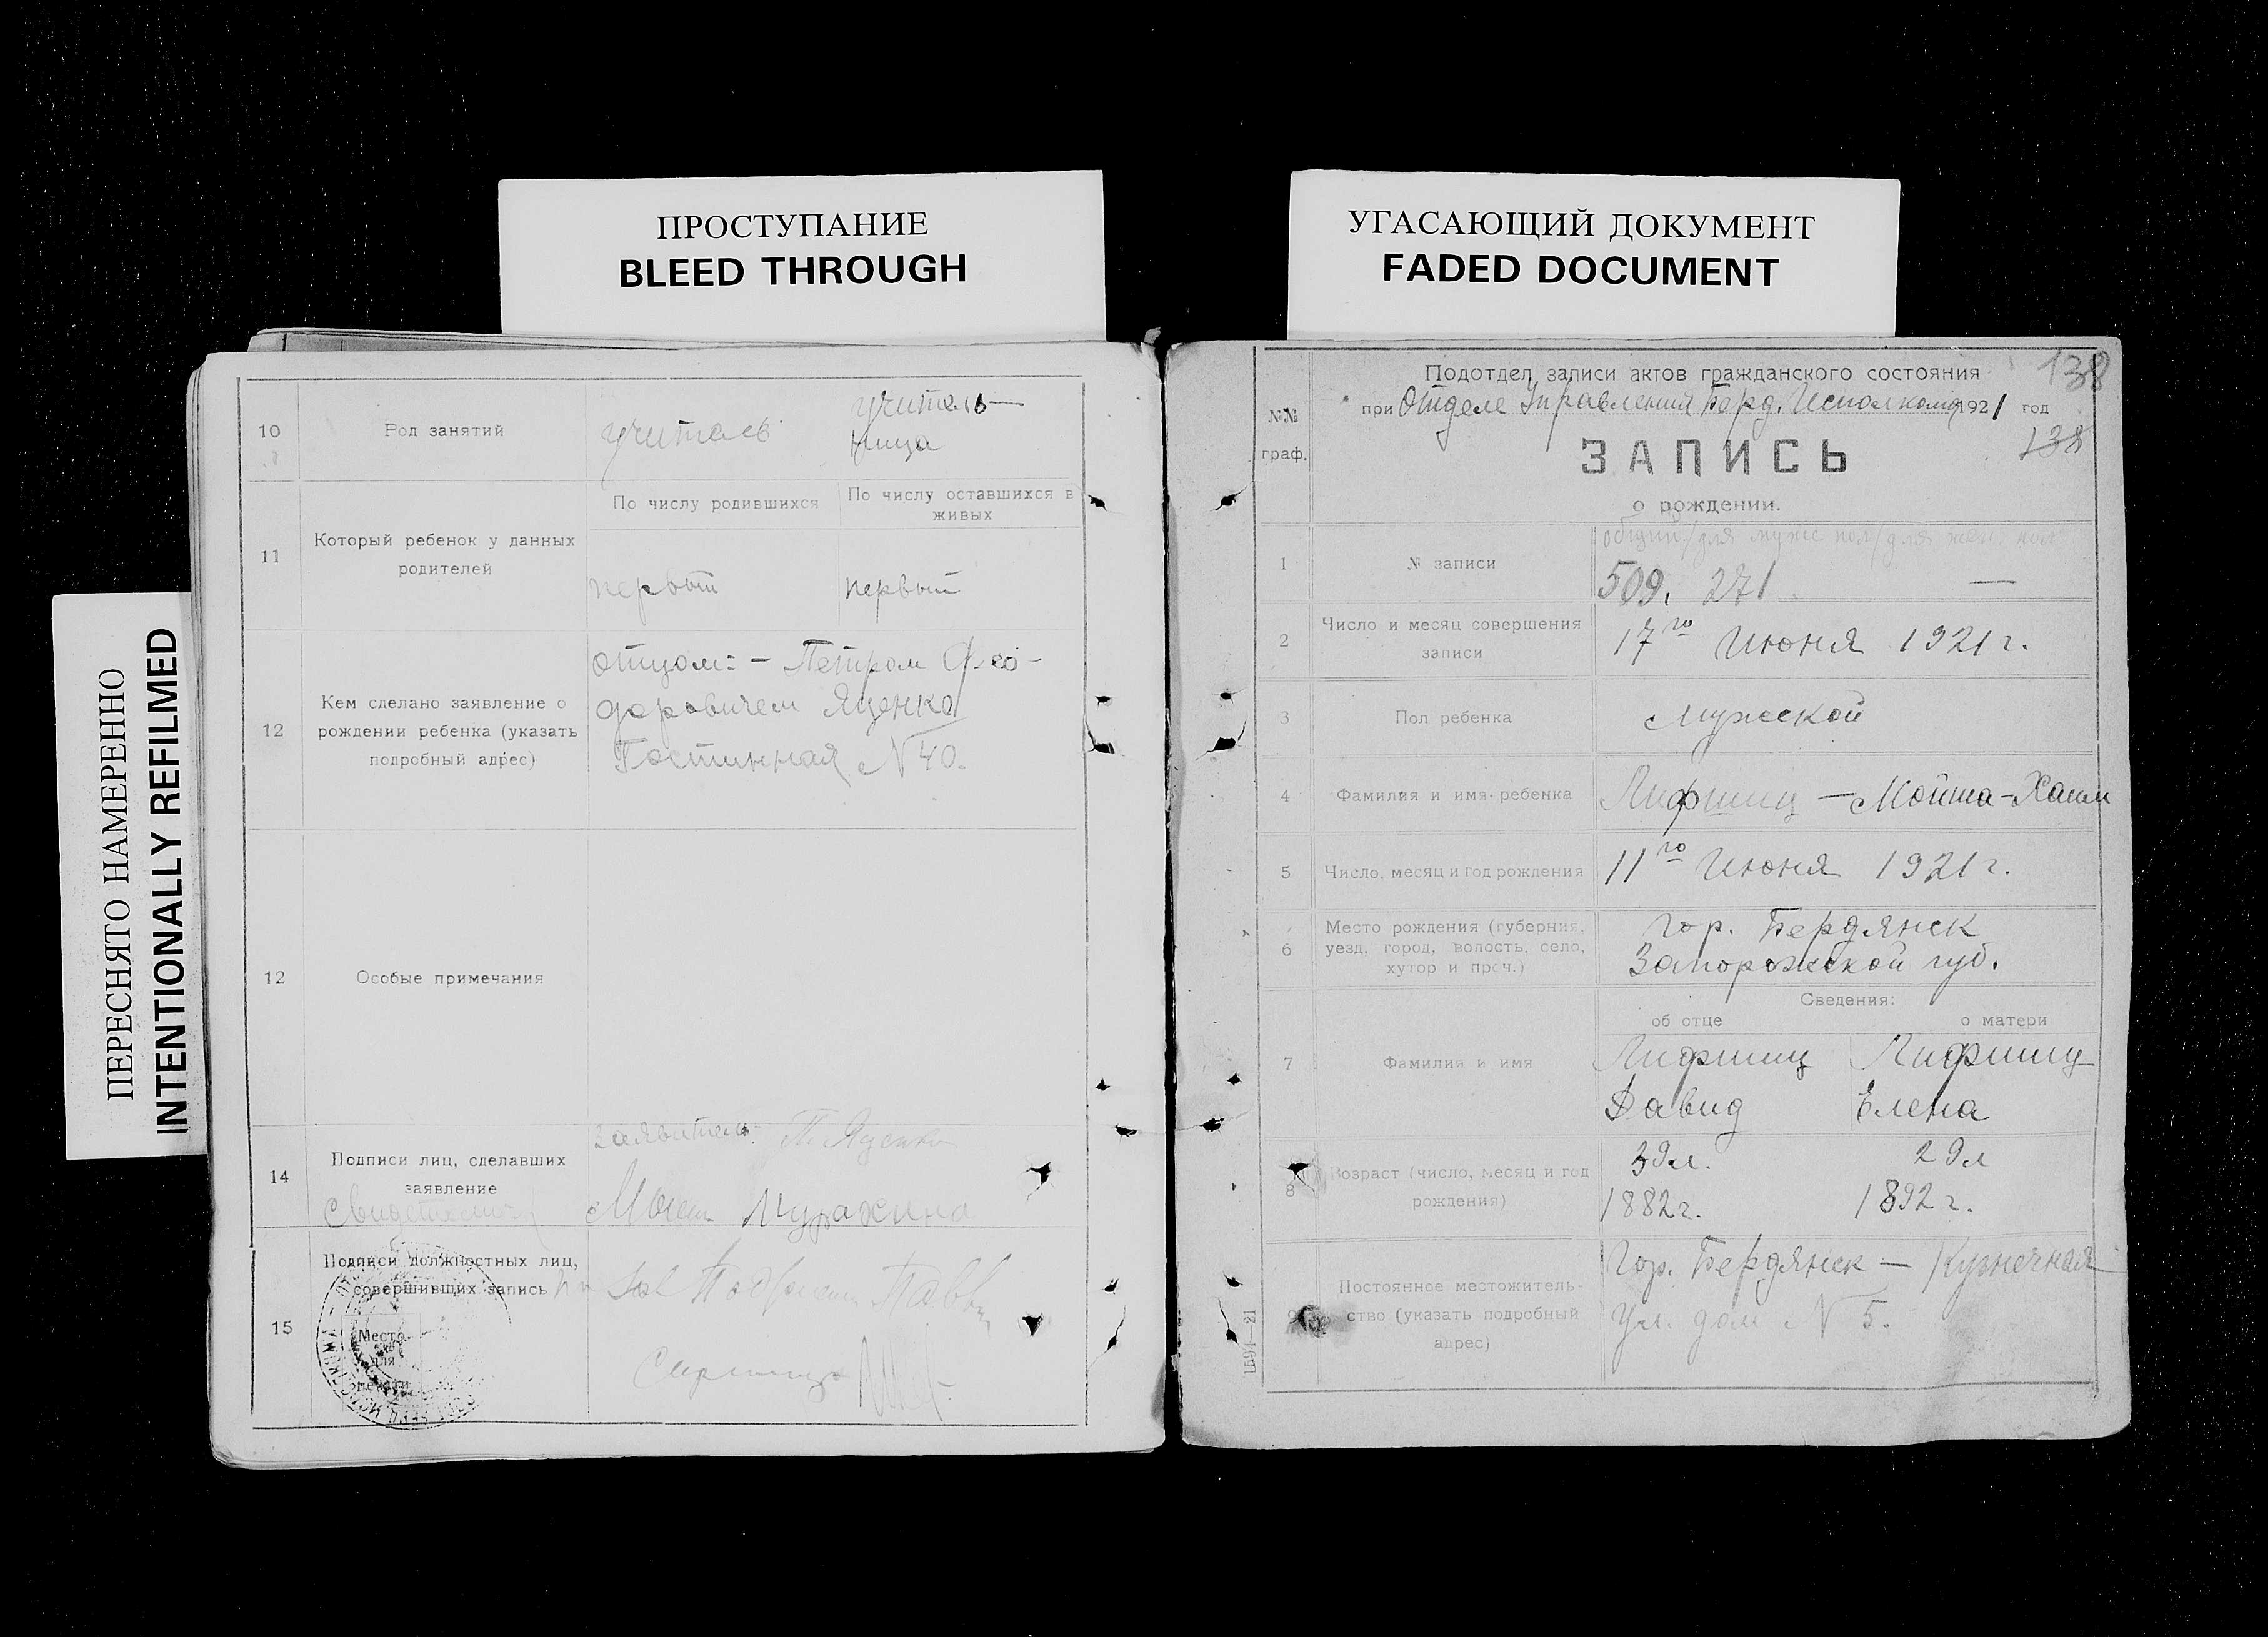 ПРОСТУПАНИЕ
BLEED THROUGH
УГАСАЮЩИЙ ДОКУМЕНТ
FADED DOCUMENT
ПЕРЕСНЯТО НАМЕРЕННО
INTENTIONALLY REFILMED
10
Род занятий
учитель
учитель-
ница
11
Который ребенок у данных
родителей
По числу родившихся
По числу оставшихся в
живых
первый
первый
12
Кем сделано заявление о
рождении ребенка (указать
подробный адрес)
отцом: - Петром Фео-
доровичем Яценко
Гостинная N 40.
12
Особые примечания
14
Подписи лиц, сделавших
заявление
Свидетели
заявитель: П. Яценко
15
Подписи должностных лиц,
совершивших запись
Место
для
печати
138
Подотдел записи актов гражданского состояния
при Отделе Управления Берд. Исполкома 1921 год
№№
граф.
ЗАПИСЬ
138
о рождении.
1
№ записи
общий/для мужс пол/для жен. пол
509. 271 —
2
Число и месяц совершения
записи
17го Июня 1921 г.
3
Пол ребенка
Мужской
4
Фамилия и имя ребенка
Лифшиц — Мойша-Хаим
5
Число, месяц и год рождения
11го Июня 1921 г.
6
Место рождения (губерния,
уезд, город, волость, село,
хутор и проч.)
гор. Бердянск
Запорожской губ.
Сведения:
об отце
о матери
7
Фамилия и имя
Лифшиц
Давид
Лифшиц
Елена
8
Возраст (число, месяц и год
рождения)
39 л.
1882 г.
29 л
1892 г.
9
Постоянное местожитель-
ство (указать подробный
адрес)
Гор. Бердянск — Кузнечная
ул. дом N 5.